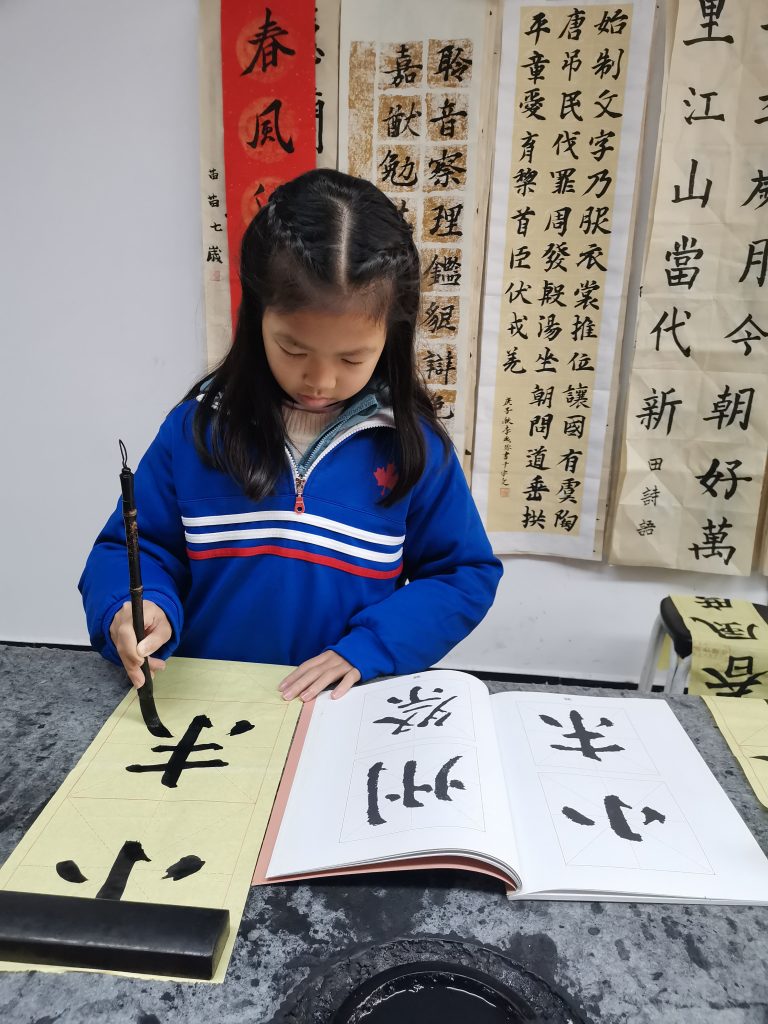 春風
苗苗七歲
聆音察理鑑貌辯色
嘉猷勉
始制文字乃服衣裳推位讓國有虞陶
唐吊民伐罪周發殷湯坐朝問道垂拱
平章愛育黎首臣伏戎羌
歲月今朝好萬
里江山當代新
田詩語
春風度
祭
州
小
小